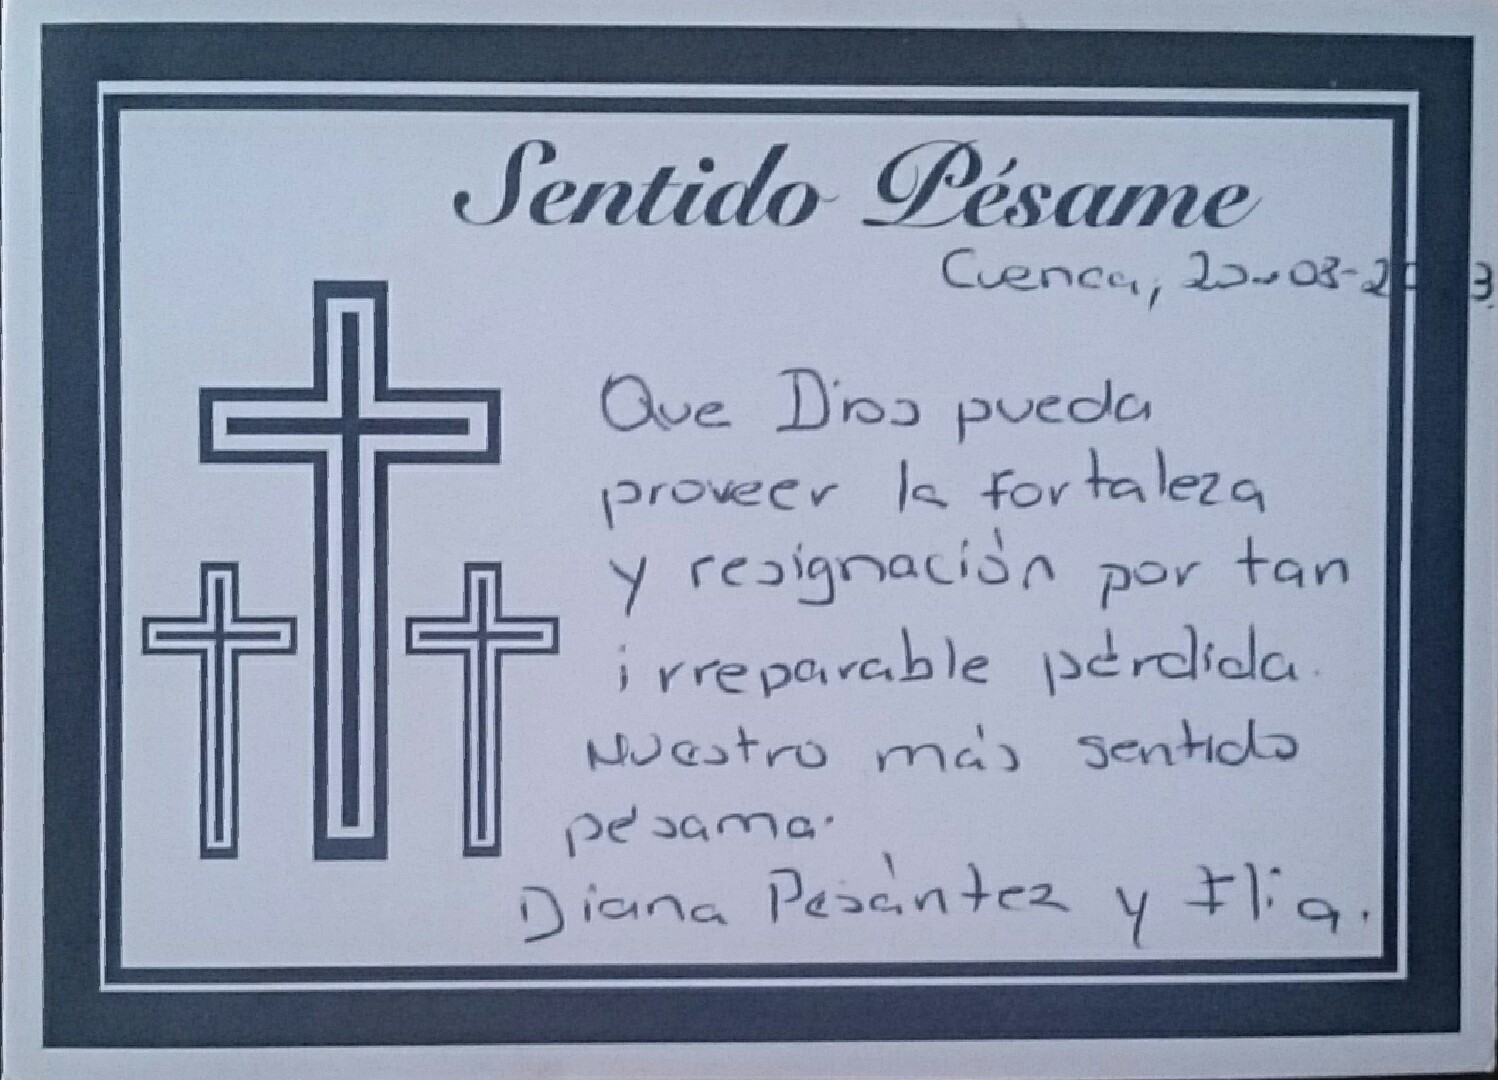 Sentido Pésame
Cuenca, 20-03-
Que Dios pueda
proveer la fortaleza
y resignación por tan
irreparable pérdida.
Nuestro más sentido
pésame.
Diana Pesántez y Flia.